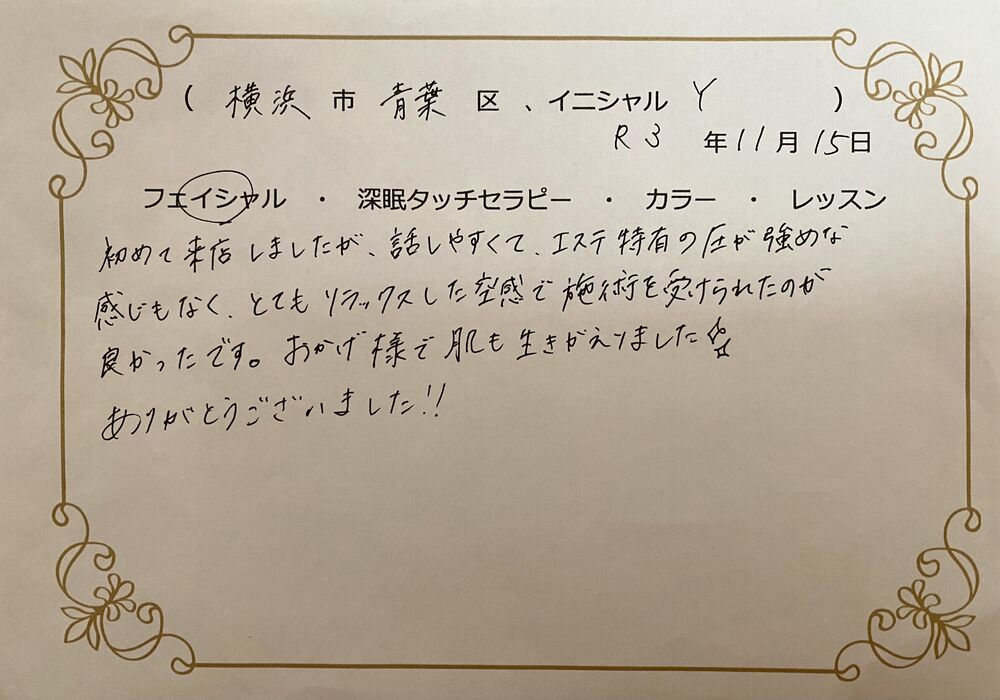 ( 横浜 市 青葉 区 、イニシャル Y )
R3 年 11 月 15 日
フェイシャル ・ 深眠タッチセラピー ・ カラー ・ レッスン
初めて来店しましたが、話しやすくて、エステ特有の圧が強めな
感じもなく、とてもリラックスした空感で施術を受けられたのが
良かったです。おかげ様で肌も生きがえりました☆
ありがとうございました!!